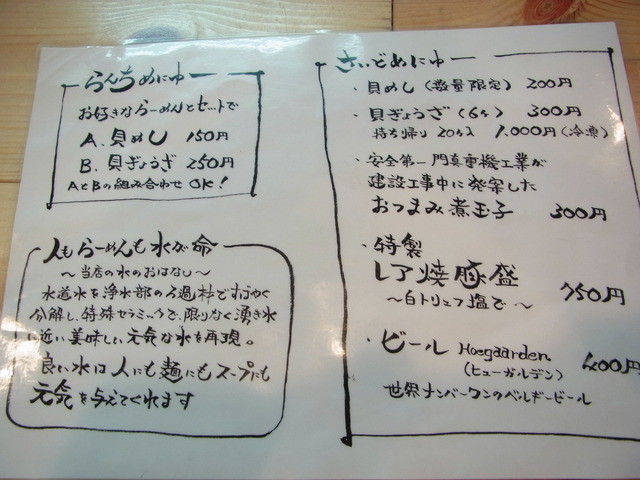 らんちめにゅー
お好きならーめんとセットで
A. 貝めし 150円
B. 貝ぎょうざ 250円
AとBの組み合わせ OK!
人もらーめんも水が命
〜当店の水のおはなし〜
水道水を浄水部の
分解し、特殊セラミックで、限りなく湧き水
に近い美味しい元気な水を再現。
良い水は人にも麺にもスープにも
元気を与えてくれます
さいどめにゅー
・貝めし(数量限定) 200円
・貝ぎょうざ(6ヶ) 300円
持ち帰り 20ヶ入 1,000円(冷凍)
・安全第一門真重機工業が
建設工事中に発案した
おつまみ煮玉子 300円
・特製
レア焼豚盛 750円
〜白トリュフ塩で〜
・ビール Hoegaarden 400円
(ヒューガルデン)
世界ナンバーワンのベルギービール